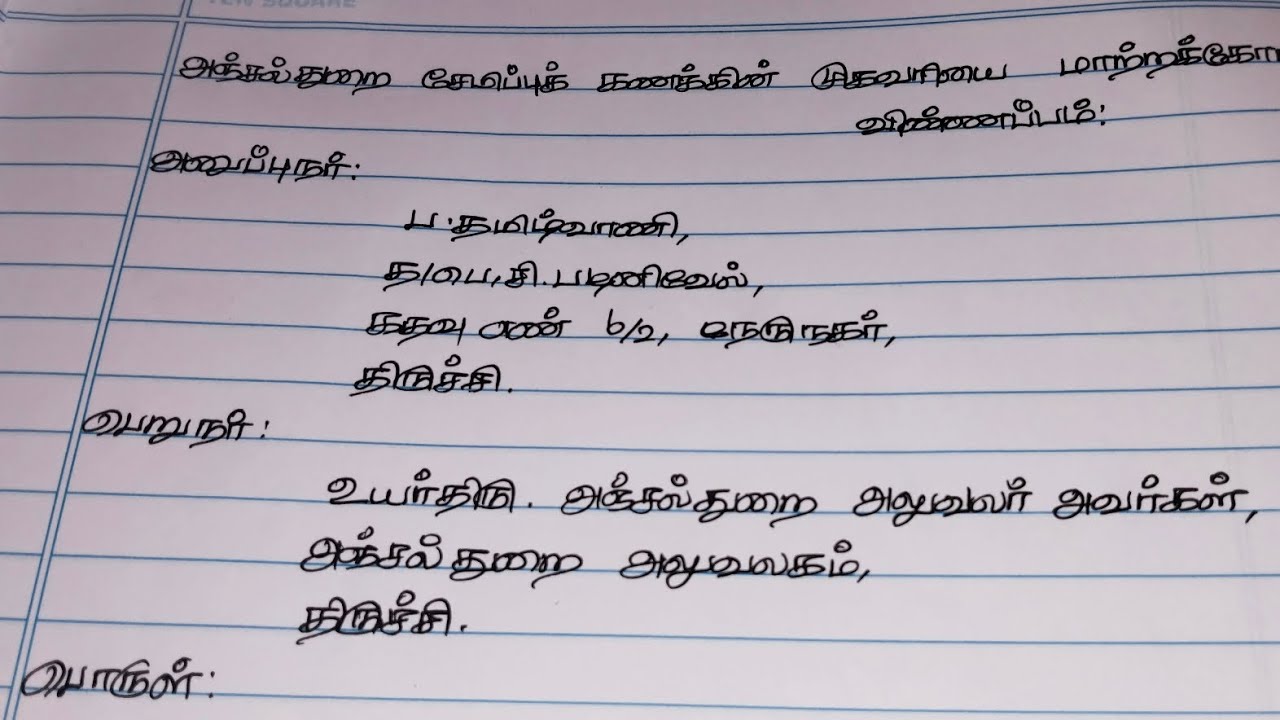 TEN SQUARE
அஞ்சல்துறை சேமிப்புக் கணக்கின் முகவரியை மாற்றக்கோ
விண்ணப்பம்:
அனுப்புநர்:
ப.தமிழ்வாணி,
த/பெ, சி.பழனிவேல்,
கதவு எண் 6/2, நேருநகர்,
திருச்சி.
பெறுநர்:
உயர்திரு. அஞ்சல்துறை அலுவலர் அவர்கள்,
அஞ்சல்துறை அலுவலகம்,
திருச்சி.
பொருள்: